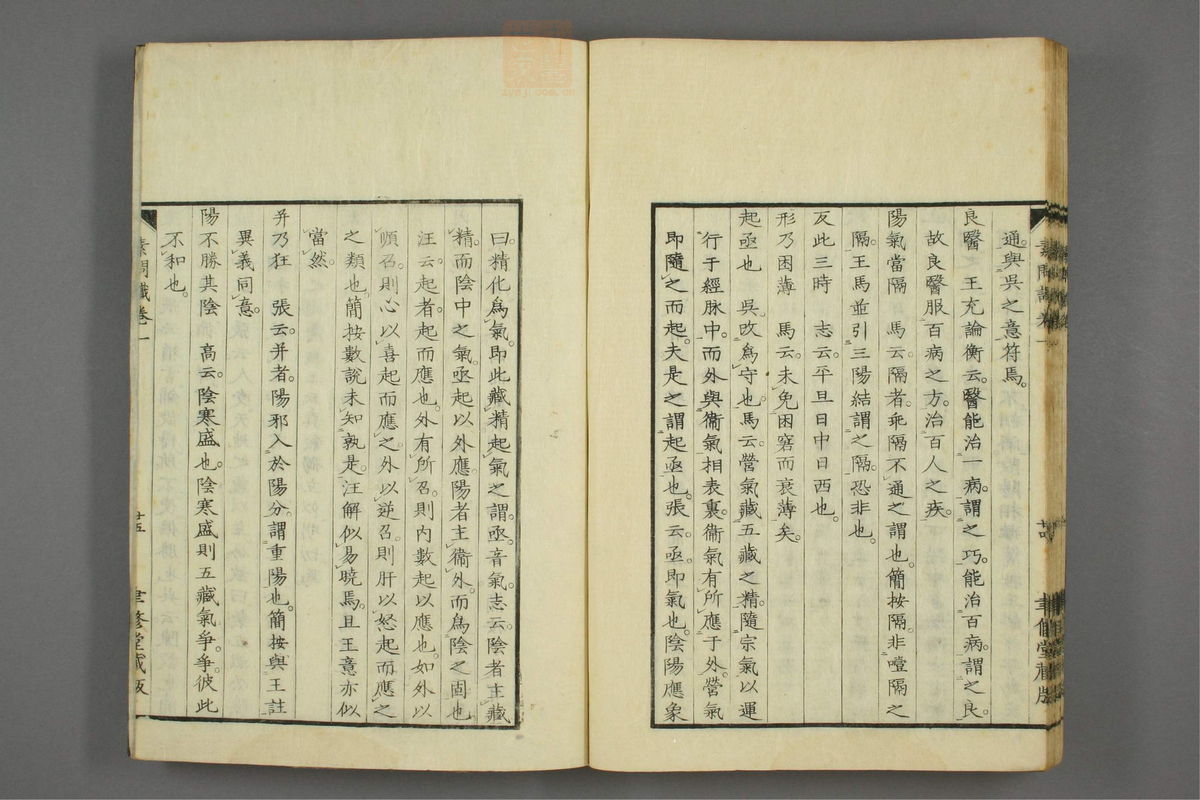 通。與吳之意符焉。
良醫之 王充論衡云。醫能治一病。謂之巧。能治百病。謂之良。
故良醫服百病之方。治百人之疾。
陽氣當隔 馬云。隔者。乖隔不通之謂也。簡按隔。非噎隔之
隔。王馬並引三陽結謂之隔。恐非也。
反此三時 志云。平旦日中日西也。
形乃困薄 馬云。未免困窘而衰薄矣。
起亟也 吳改爲守也。馬云。營氣藏五藏之精。隨宗氣以運
行于經脉中。而外與衞氣相表裏。衞氣有所應于外。營氣
即隨之而起。夫是之謂起亟也。張云。亟即氣也。陰陽應象
曰。精化爲氣。即此藏精起氣之謂。亟。音氣。志云。陰者主藏
精。而陰中之氣。亟起以外應。陽者主衞外。而爲陰之固也
汪云。起者。起而應也。外有所召。則內數起以應也。如外以
順召。則心以喜起而應之。外以逆召。則肝以怒起而應之
之類也。簡按數說未知孰是。汪解似易曉焉。且王意亦似
當然。
并乃狂 張云。并者。陽邪入於陽分。謂重陽也。簡按與王註
異義同意。
陽不勝其陰 高云。陰寒盛也。陰寒盛則五藏氣爭。爭。彼此
不和也。
素問識卷一
廿五
聿修堂藏版